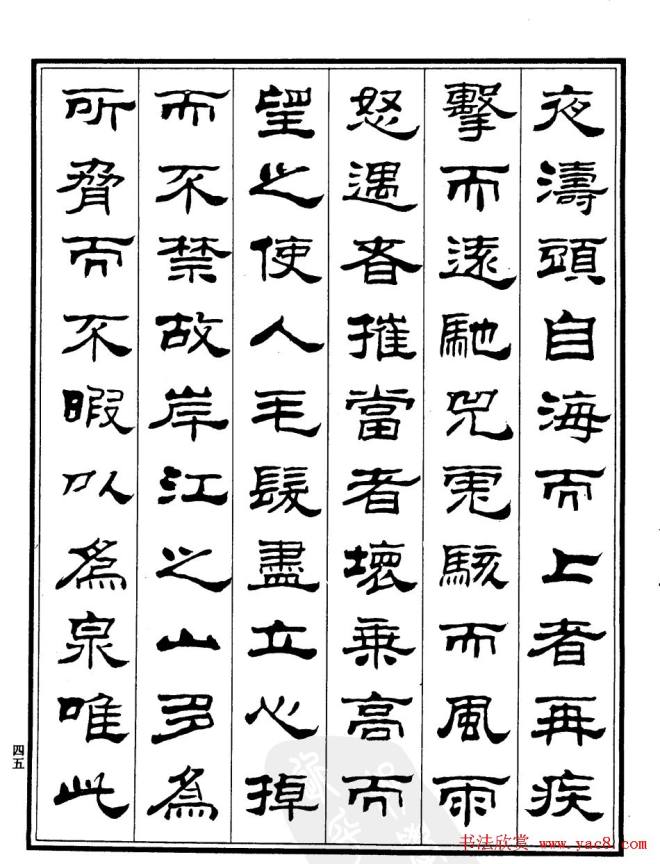 夜濤頭自海而上者再疾
擊而遠馳兕虎駭而風雨
怒遇者摧當者壞乘高而
望之使人毛髮盡立心掉
而不禁故岸江之山多為
所脅而不暇以為泉唯此
四五
书法欣赏 www.yac8.com